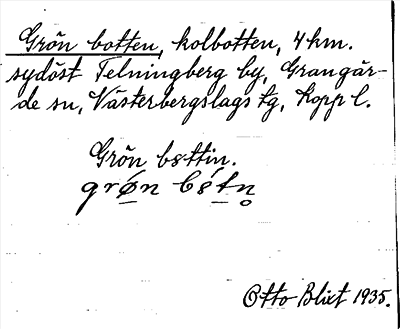 Grön botten, kolbotten, 4 km.
sydöst Telningberg by, Grangär-
de sn, Västerbergslags tg, Kopp l.
Grön bøttin.
grǿn bǿtn̥
Otto Blixt 1935.